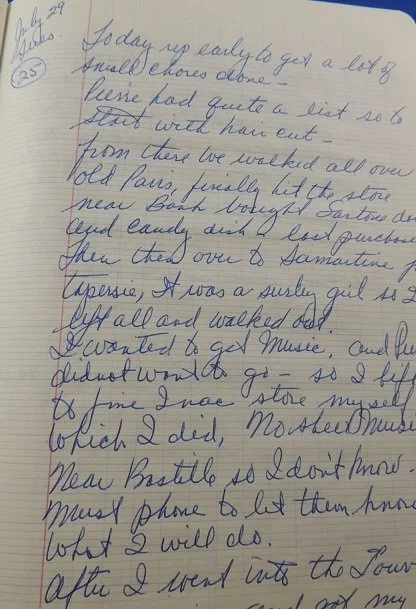 July 29
Tues.
25
Today up early to get a lot of
small chores done -
Pierre had quite a list so to
start with hair cut -
from there we walked all over
Old Paris, finally hit the store
near Bank bought
and candy dish a last purchase
Then then over to Samartine
It was a surley girl so I
left all and walked out.
I wanted to get Music, and
did not want to go - so I
to fine Fnac store myself
Which I did, No sheet Music
Near Bastille so I don't know.
Must phone to let them know
What I will do.
After I went into the
and my